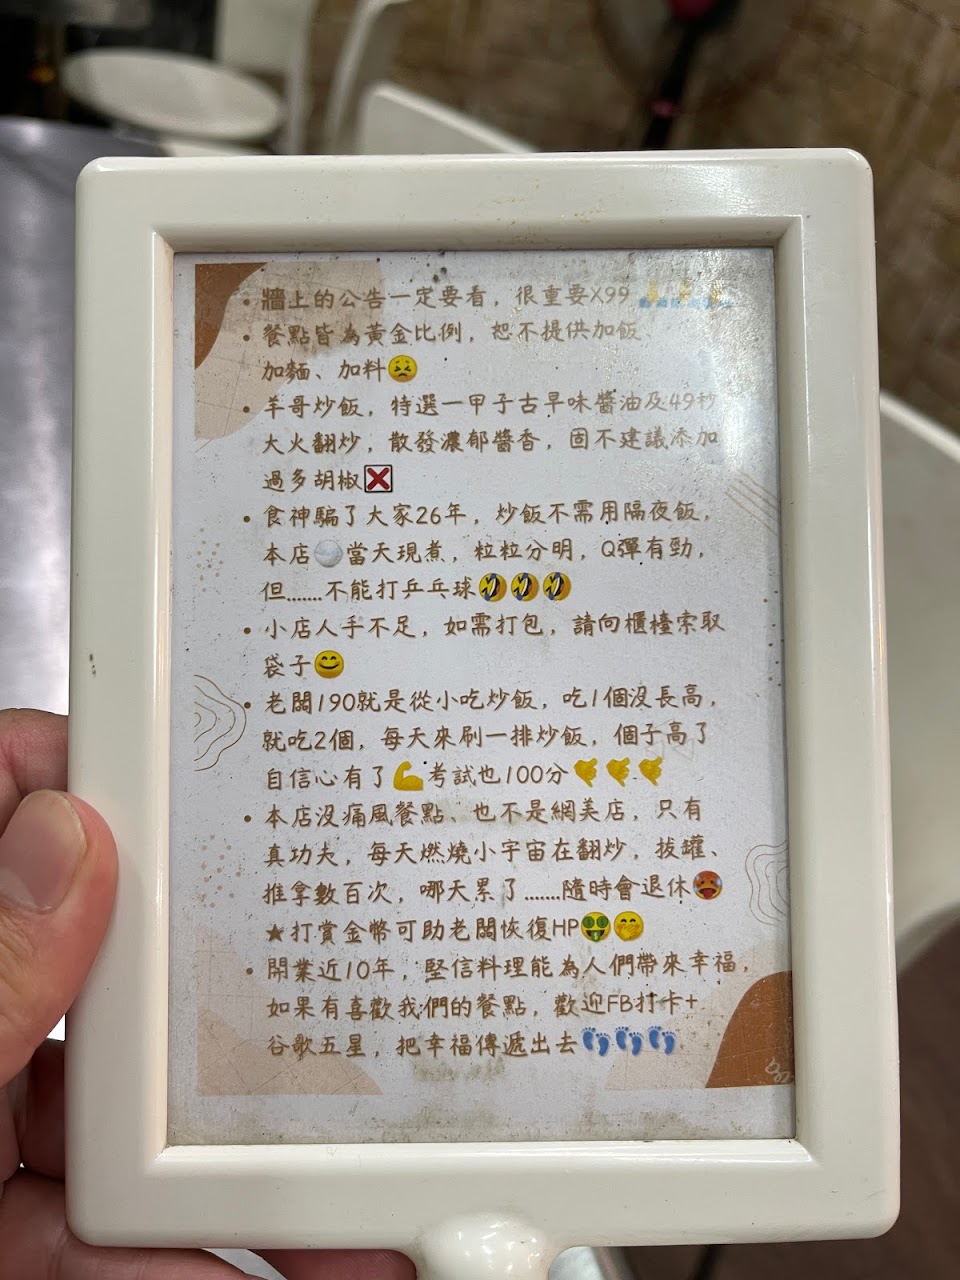 • 牆上的公告一定要看，很重要X99
• 餐點皆為黃金比例，恕不提供加飯、
加麵、加料😣
• 羊哥炒飯，特選一甲子古早味醬油及49秒
大火翻炒，散發濃郁醬香，固不建議添加
過多胡椒❌
• 食神騙了大家26年，炒飯不需用隔夜飯，
本店⚪當天現煮，粒粒分明，Q彈有勁，
但.......不能打乒乓球🤣🤣🤣
• 小店人手不足，如需打包，請向櫃檯索取
袋子😊
• 老闆190就是從小吃炒飯，吃1個沒長高，
就吃2個，每天來刷一排炒飯，個子高了
自信心有了💪考試也100分🤙🤙🤙
• 本店沒痛風餐點、也不是網美店，只有
真功夫，每天燃燒小宇宙在翻炒，拔罐、
推拿數百次，哪天累了.......隨時會退休🥵
★打賞金幣可助老闆恢復HP🤑🤭
• 開業近10年，堅信料理能為人們帶來幸福，
如果有喜歡我們的餐點，歡迎FB打卡+
谷歌五星，把幸福傳遞出去👣👣👣